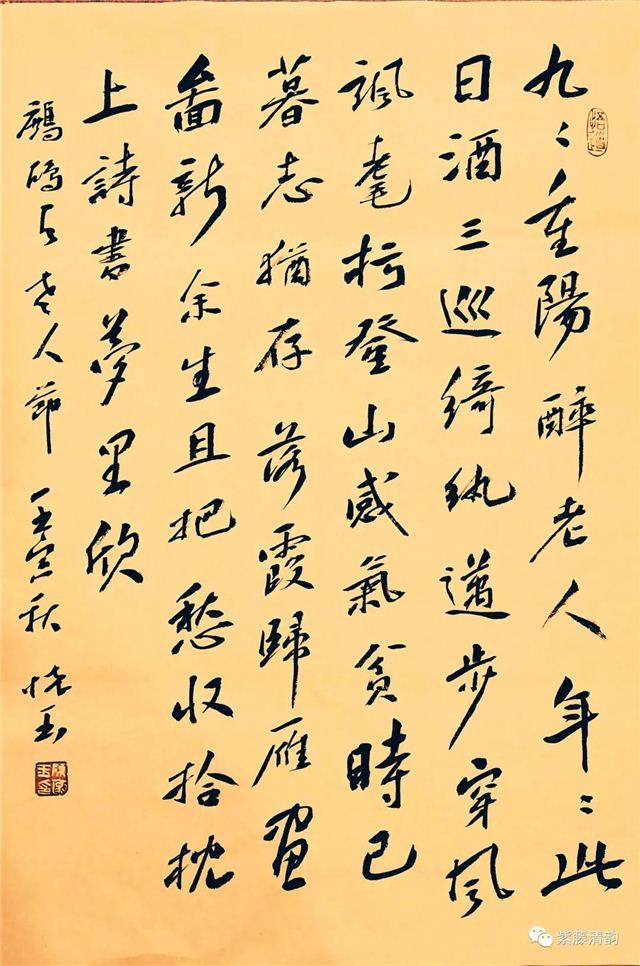 九〻重陽醉老人年〻此
日酒三巡綺紈邁步穿風
颯耄朽登山感氣貧時已
暮志猶存落霞歸雁畫
啚新余生且把愁收拾枕
上詩書夢里欣
鷓鴣天老人節 壬寅秋
悟道
紫藤清韵